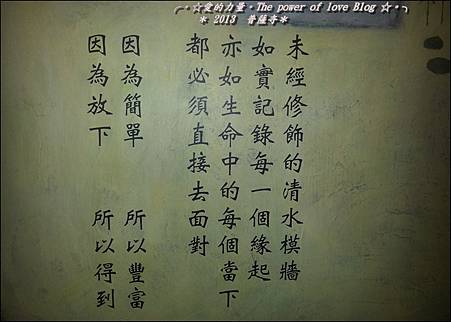 ╭•☆愛的力量•The power of love Blog☆•╮
＊ 2013 普薩寺＊
未經修飾的清水模牆
如實記錄每一個緣起
亦如生命中的每個當下
都必須直接去面對
因為簡單 所以豐富
因為放下 所以得到